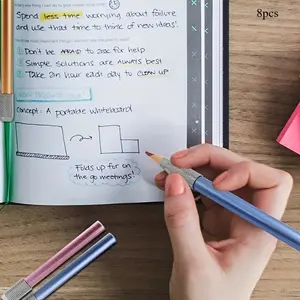 8pcs
Spend less time worrying about failure
and use that time to think of new ideas!
① Don't be AFRAID to ask for help
② Simple solutions are ALWAYS BEST
③ Take an hour each day to CLEAN UP
Concept: A portable whiteboard
Folds up for on
the go meetings!